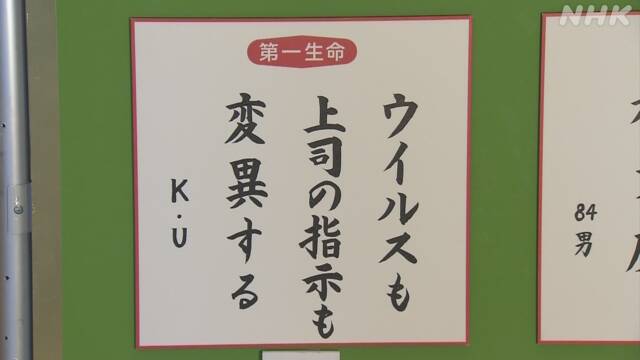 NHK
第一生命
ウイルスも
上司の指示も
変異する
K.U
84
男